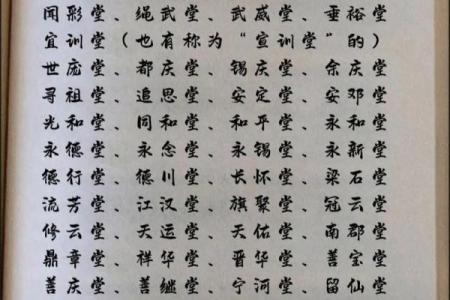 闻彩堂、绳武堂、武威堂、垂裕堂
宜训堂(也有称为“宣训堂”的)
世庞堂、都庆堂、锡庆堂、余庆堂
寻祖堂、追思堂、安定堂、安邓堂
光和堂、同和堂、和平堂、永和堂
永德堂、永念堂、永锡堂、永新堂
德行堂、德川堂、长怀堂、梁石堂
流芳堂、江汉堂、旗聚堂、冠云堂
修云堂、天运堂、天佑堂、南郡堂
鼎章堂、祥华堂、晋华堂、善宝堂
善庆堂、善继堂、宁河堂、留仙堂